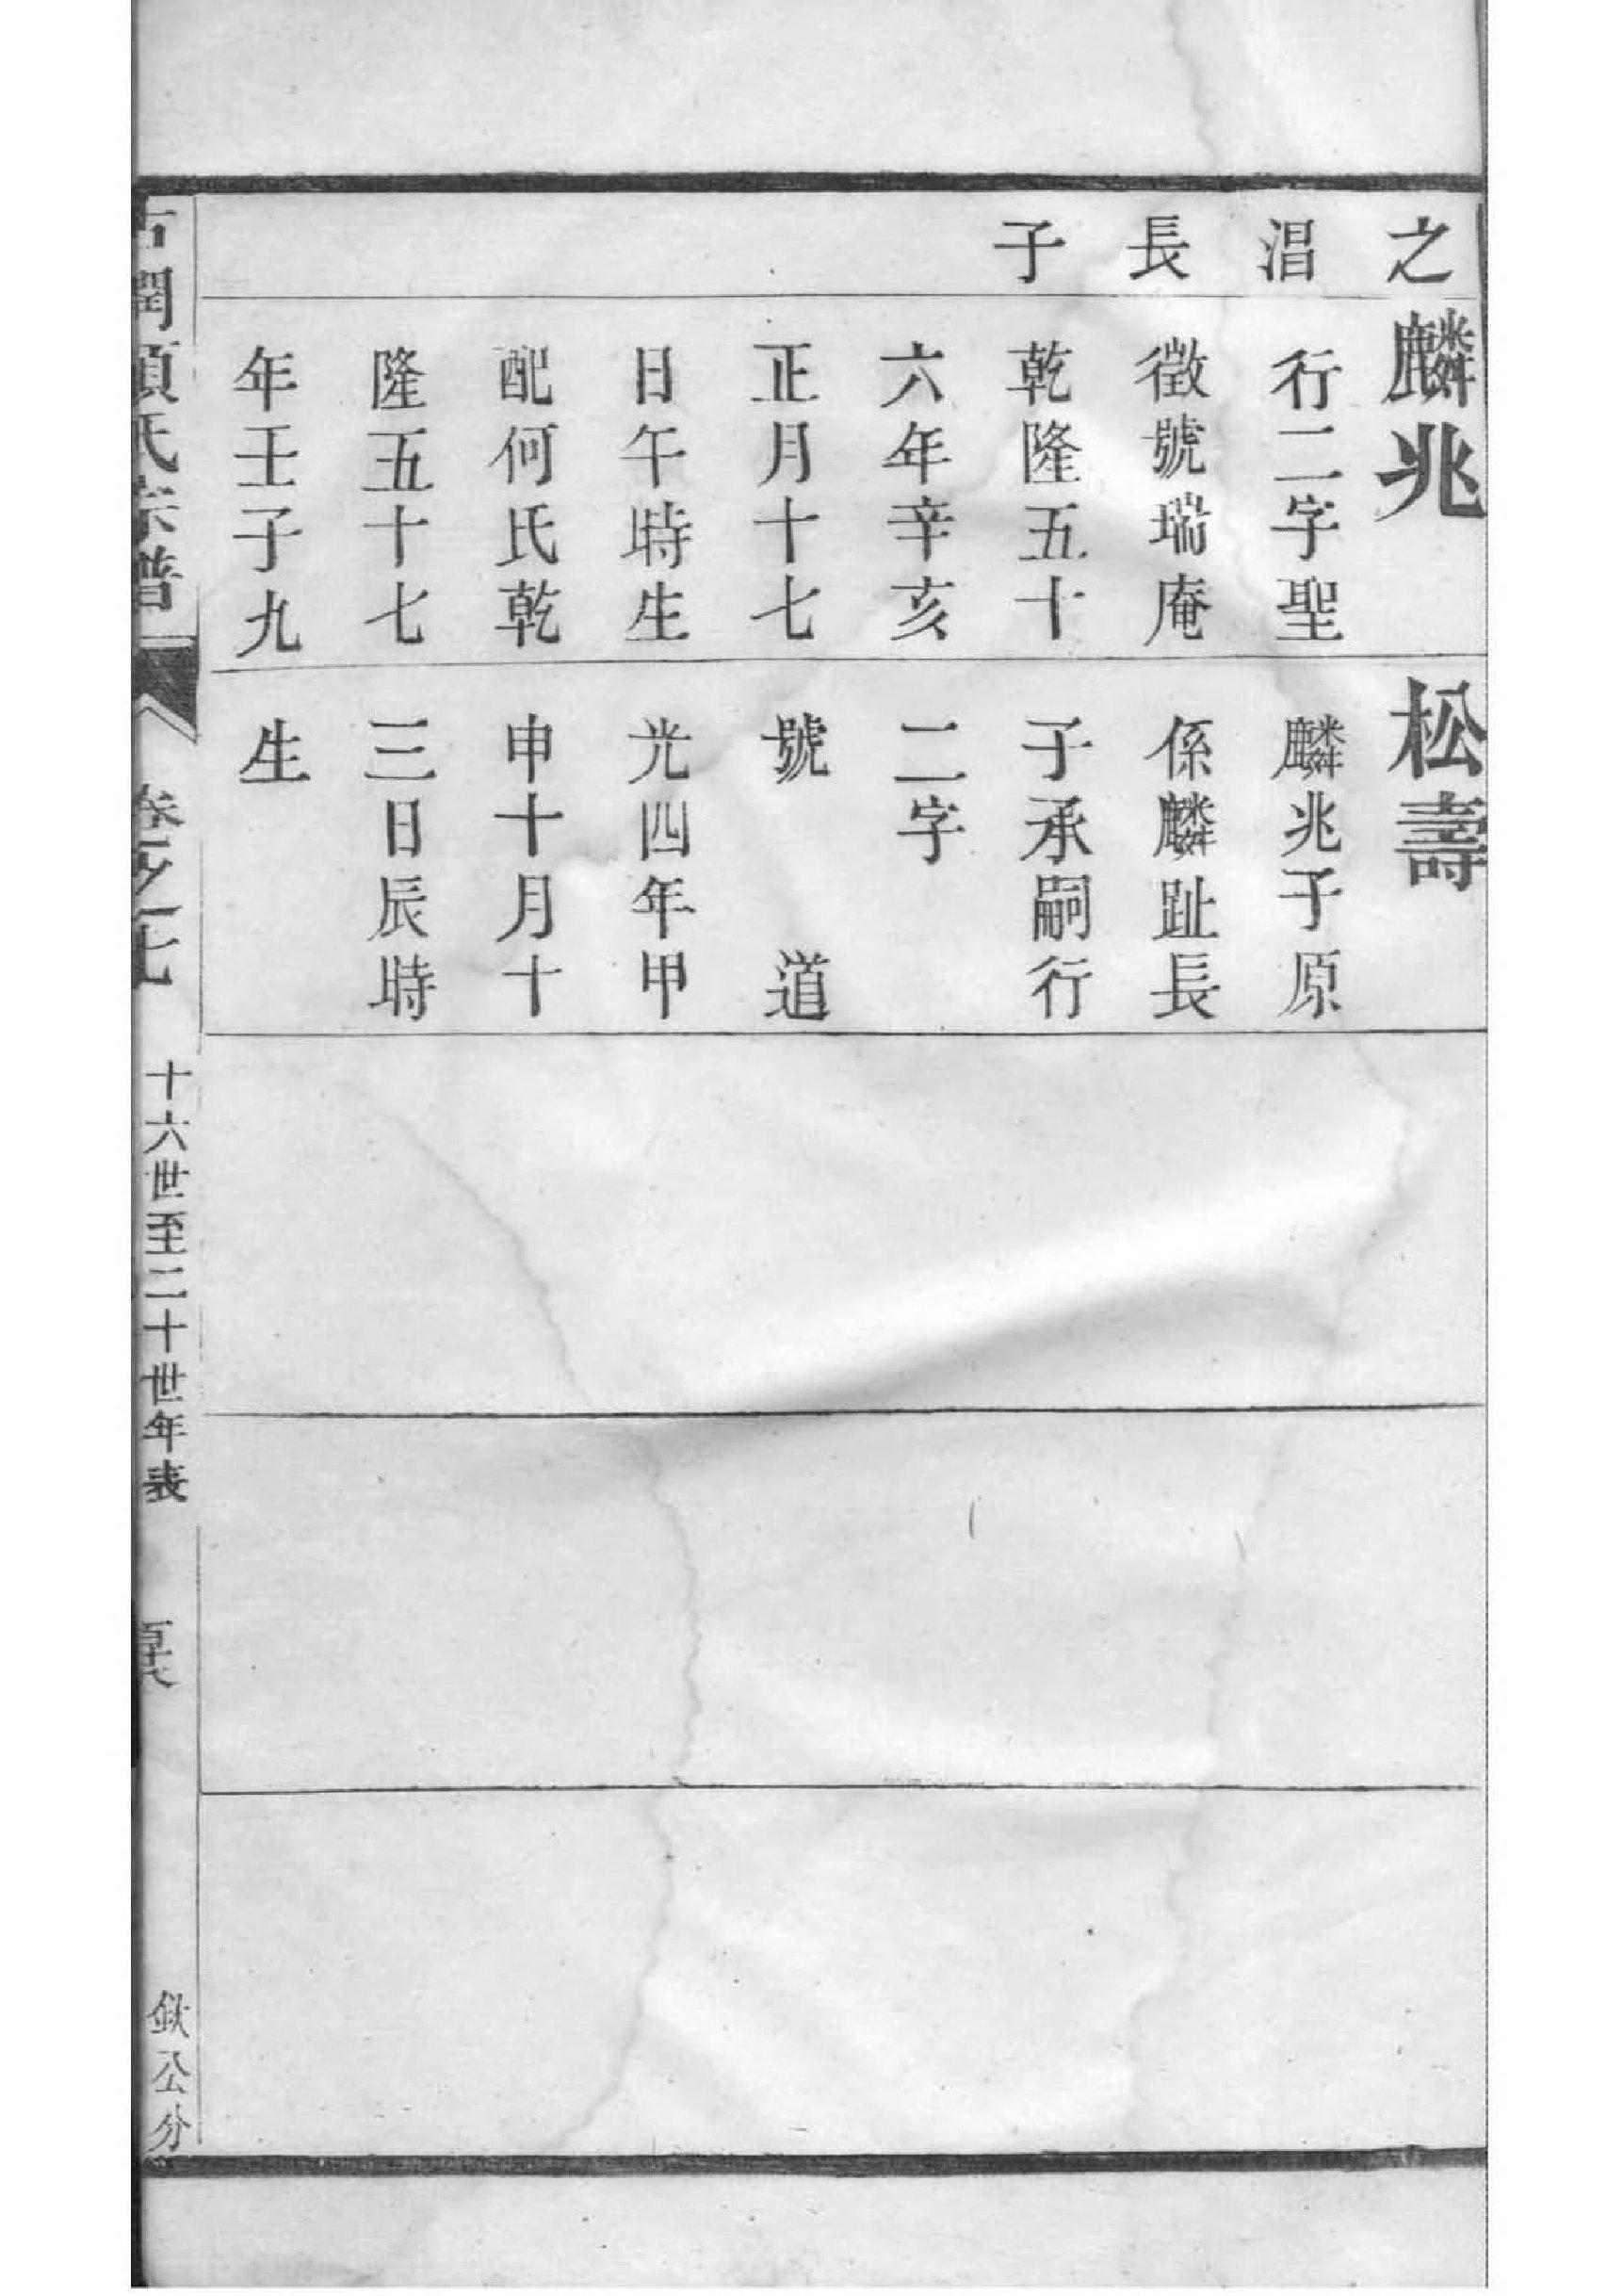 之
淐
長
子
麟兆
行二字聖
徵號瑞庵
乾隆五十
六年辛亥
正月十七
日午時生
配何氏乾
隆五十七
年壬子九
松壽
麟兆子原
係麟趾長
子承嗣行
二字
號　　道
光四年甲
申十月十
三日辰時
生
氏宗譜
卷之七
十六世至二十世年表
欽公分